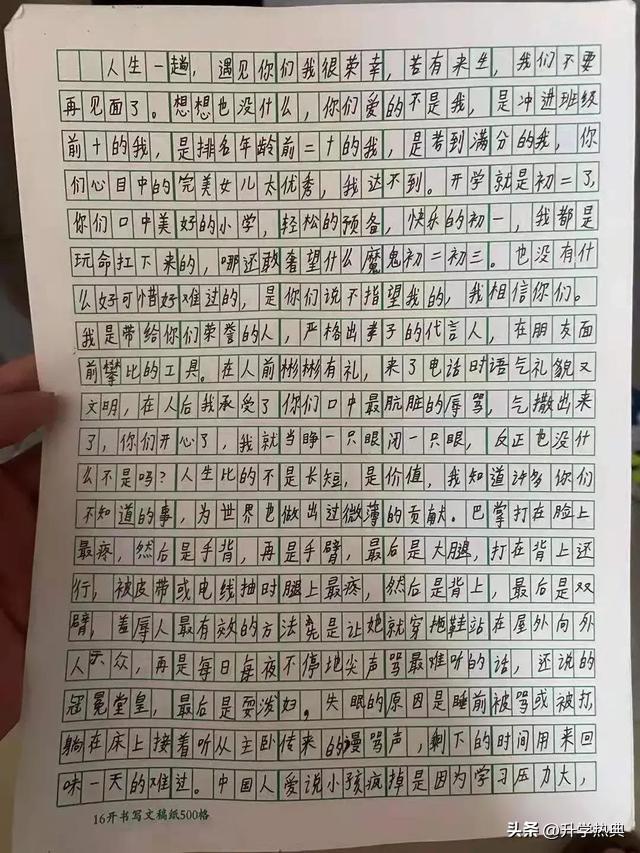 人生一趟，遇见你们我很荣幸，若有来生，我们不要
再见面了。想想也没什么，你们爱的不是我，是冲进班级
前十的我，是排名年龄前二十的我，是考到满分的我，你
们心目中的完美女儿太优秀，我达不到。开学就是初二了，
你们口中美好的小学，轻松的预备，快乐的初一，我都是
玩命扛下来的，哪还敢奢望什么魔鬼初二初三。也没有什
么好可惜好难过的，是你们说不指望我的，我相信你们。
我是带给你们荣誉的人，严格出孝子的代言人，在朋友面
前攀比的工具。在人前彬彬有礼，来了电话时语气礼貌又
文明，在人后我承受了你们口中最肮脏的辱骂，气撒出来
了，你们开心了，我就当睁一只眼闭一只眼，反正也没什
么不是吗？人生比的不是长短，是价值，我知道许多你们
不知道的事，为世界也做出过微薄的贡献。巴掌打在脸上
最疼，然后是手背，再是手臂，最后是大腿，打在背上还
行，被皮带或电线抽时腿上最疼，然后是背上，最后是双
臂，羞辱人最有效的方法先是让她就穿拖鞋站在屋外向外
人示众，再是每日每夜不停地尖声骂最难听的话，还说的
冠冕堂皇，最后是耍泼妇。失眠的原因是睡前被骂或被打，
躺在床上接着听从主卧传来的谩骂声，剩下的时间用来回
味一天的难过。中国人爱说小孩疯掉是因为学习压力大，
16开书写文稿纸500格
头条 @升学热典